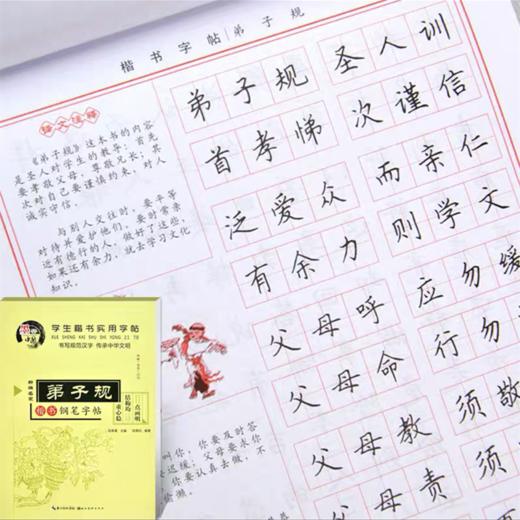 楷书字帖|弟子规
译文注释
《弟子规》这本书的内容
是圣人对学生的教导，首先
要孝敬父母，尊敬兄长，其
次对自己要谨慎约束，对人
诚实守信。
与别人交往时，要平等
对待并爱护他们，要时常亲
近有德行的人，做好了这些，
如果还有余力，就去学习文化
知识。
弟子规 圣人训
首孝悌 次谨信
泛爱众 而亲仁
有余力 则学文
父母呼 应勿缓
父母命 行勿
父母教 须敬
父母责 须
叫你，你要及时答
迟缓，父母要求你
要认真去做，不
偷懒
学生楷书实用字帖
XUE SHENG KAI SHU SHI YONG ZI TIE
书写规范汉字 传承中华文明
弟子规
楷书 钢笔字帖
一点画明
结构均
重心稳